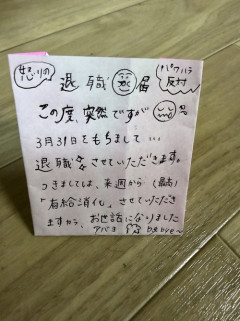 怒りの
退職届
パワハラ
反対
この度、突然ですが
3月31日をもちまして…
退職させていただきます。
つきましては、来週から(最高)
「有給消化」させていただき
ますから、お世話になりました
アバヨ bye bye〜